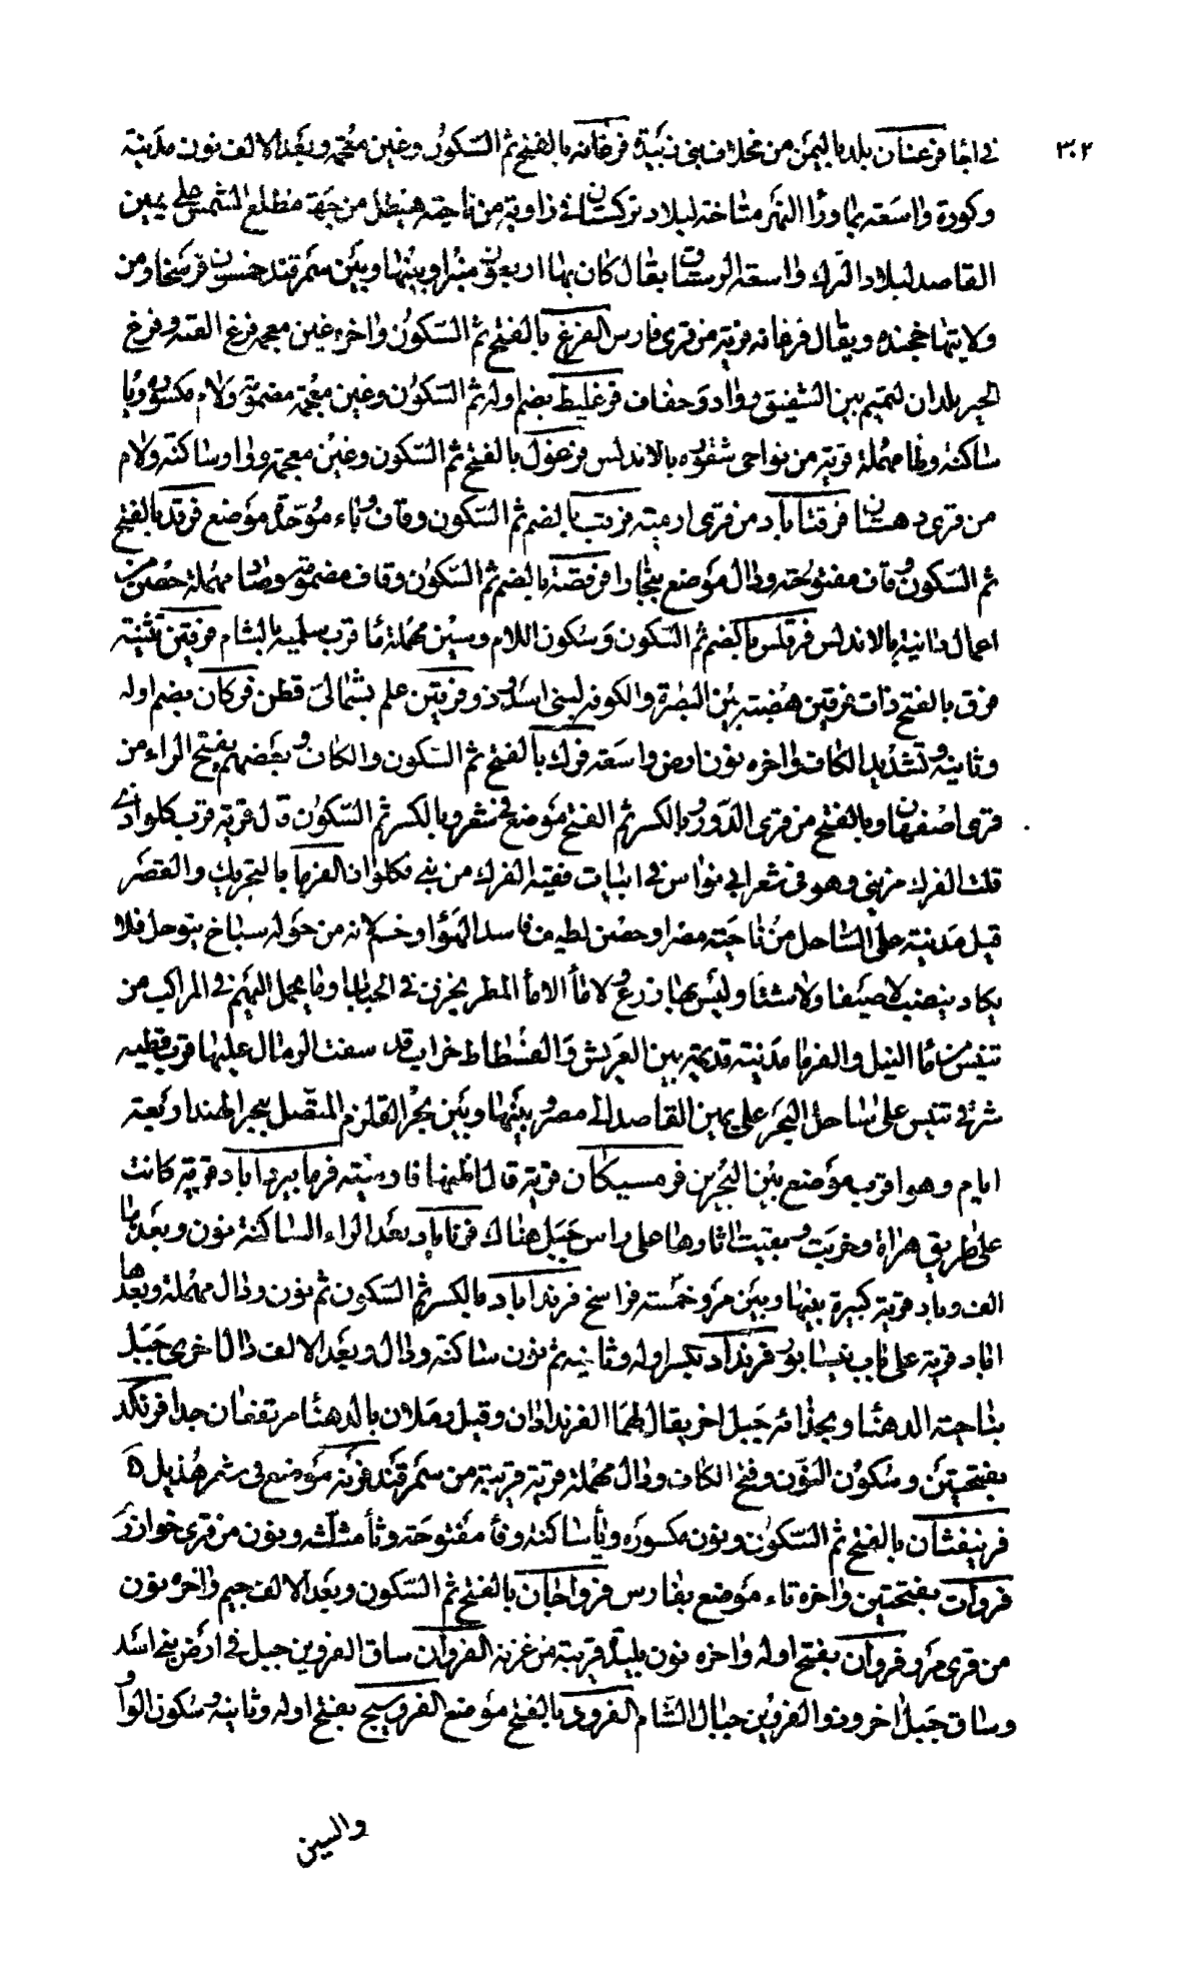 ٣٠٢
في اجا فرعنان بلد باليمن من مخلاف بني زبيد فرغانه بالفتح ثم السكون وغين معجمه وبعد الالف نون مدينة
وكورة واسعة بما ورا النهر متاخمة لبلاد تركستان في زاوية من ناحية هيطل من جهة مطلع الشمس على يمين
القاصد لبلاد الترك واسعة الرستاق يقال كان بها اربعون منبرا وبينها وبين سمرقند خمسون فرسخا ومن
ولايتها خجنده ويقال فرغانه قرية من قرى فارس الفرغ بالفتح ثم السكون واخره غين معجمه فرغ القنه وفرغ
الحير بلدان لتميم بين الشقيق واود وخفاف فرغليط بضم اوله ثم السكون وغين معجمة مضمومة ولام مكسوره ويا
ساكنة وطا مهملة قرية من نواحي شقوره بالاندلس فرغول بالفتح ثم السكون وغين معجمة وواو ساكنة ولام
من قرى دهستان فرقتاباد من قرى ارمية فرقب بالضم ثم السكون وقاف وباء موحدة موضع فرقد بالفتح
ثم السكون وقاف مفتوحة ودال موضع ببخارا فرقصة بالضم ثم السكون وقاف مضمومة وصاد مهملة حصن من
اعمال دانية بالاندلس فرقلس بالضم ثم السكون وسكون اللام وسين مهملة ما قرب سلمية بالشام فرقين تثنية
فرق بالفتح ذات فرقين هضبة بين البصرة والكوفه لبني اسد وفرقين علم بشمالي قطن فركان بضم اوله
وثانيه وتشديد الكاف واخره نون ارض واسعة فرك بالفتح ثم السكون والكاف وبعضهم بفتح الراء من
قرى اصفهان وبالفتح من قرى الدور وبالكسر ثم الفتح موضع في شعر وبالكسر ثم السكون قال قرية قرب كلواذى
قلت الفرك مزيني وهو في شعر ابي نواس في ابيات فقيه الفرك من بني كلواذ الفرما بالتحريك والقصر
قيل مدينة على الساحل من ناحية مصر او حصن لطيف فاسد الهوا وخم لانه من حوله سباخ يتوحل فلا
يكاد ينضب لا صيفا ولا شتا وليس بها زرع ولا ما الا ما المطر يخزن في الجباب وما يحمل اليهم في المراكب من
تنيس من ما النيل والفرما مدينة قديمة بين العريش والفسطاط خراب قد سفت الرمال عليها قرب قطيه
شرقي تنيس على ساحل البحر على يمين القاصد الى مصر وبينها وبين بحر القلزم المتصل ببحر الهند اربعة
ايام وهو اقرب موضع بين البحرين فرمسيكان قرية قال اظنها فارسية فرهابيرداباد قرية كانت
على طريق هراة وخربت وبقيت اثارها على راس جبل هناك فرناباد بعد الراء الساكنة نون وبعدها
الف وباد قرية كبيرة بينها وبين مرو خمسة فراسخ فرنداباد بالكسر ثم السكون ثم نون ودال مهملة وبعدها
اباد قرية على باب نيسابور فرنداد بكسر اوله وثانيه ثم نون ساكنة ودال وبعد الالف دال اخرى جبل
بناحية الدهنا وبحذائه جبل اخر يقال لهما الفرندادان وقيل رملان بالدهنا مرتفعان جدا فرنكد
بفتحتين وسكون النون وفتح الكاف ودال مهملة قرية قريبة من سمرقند فرنه موضع في شعر هذيل
فرنيفثان بالفتح ثم السكون ونون مكسوره ويأ ساكنة وفأ مفتوحة وثأ مثلثه ونون من قرى خوارزم
فروات بفتحتين واخره تاء موضع بفارس فرواجان بالفتح ثم السكون وبعد الالف جيم واخره نون
من قرى مرو فروان بفتح اوله واخره نون بليدة قريبة من غزنة الفروان ساق الفروين جبل في ارض بني اسد
وساق جبل اخر وذو الفروين جبال الشام الفرود بالفتح موضع الفروسيج بفتح اوله وثانيه وسكون الواو
والسين